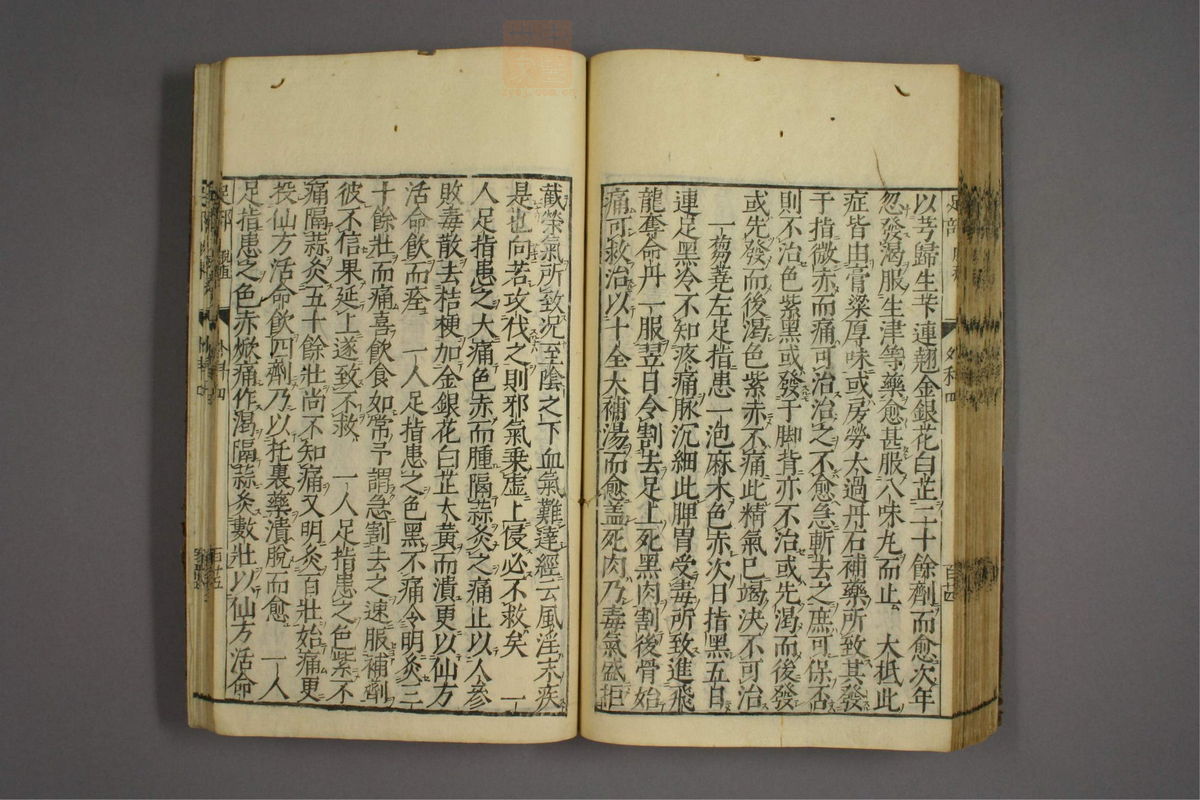 以芎歸生芐連翹金銀花白芷二十餘劑而愈次年
忽發渴服生津等藥愈甚服八味丸而止　大抵此
症皆由膏粱厚味或房勞太過丹石補藥所致其發
于指微赤而痛可治治之不愈急斬去之庶可保否
則不治色紫黑或發于脚背亦不治或先渴而後發
或先發而後渴色紫赤不痛此精氣已竭決不可治
一芻蕘左足指患一泡麻木色赤次日指黑五日
連足黑冷不知疼痛脉沉細此脾胃受毒所致進飛
龍奪命丹一服翌日令割去足上死黑肉割後骨始
痛可救治以十全大補湯而愈盖死肉乃毒氣盛拒
截榮氣所致况至陰之下血氣難達經云風淫末疾
是也向若攻伐之則邪氣乗虚上侵必不救矣　一
人足指患之大痛色赤而腫隔蒜灸之痛止以人參
敗毒散去桔梗加金銀花白芷大黄而潰更以仙方
活命飲而痊　一人足指患之色黑不痛令明灸三
十餘壯而痛喜飲食如常予謂急割去之速服補劑
彼不信果延上遂致不救　一人足指患之色紫不
痛隔蒜灸五十餘壯尚不知痛又明灸百壯始痛更
投仙方活命飲四劑乃以托裏藥潰脱而愈　一人
足指患之色赤焮痛作渴隔蒜灸數壯以仙方活命